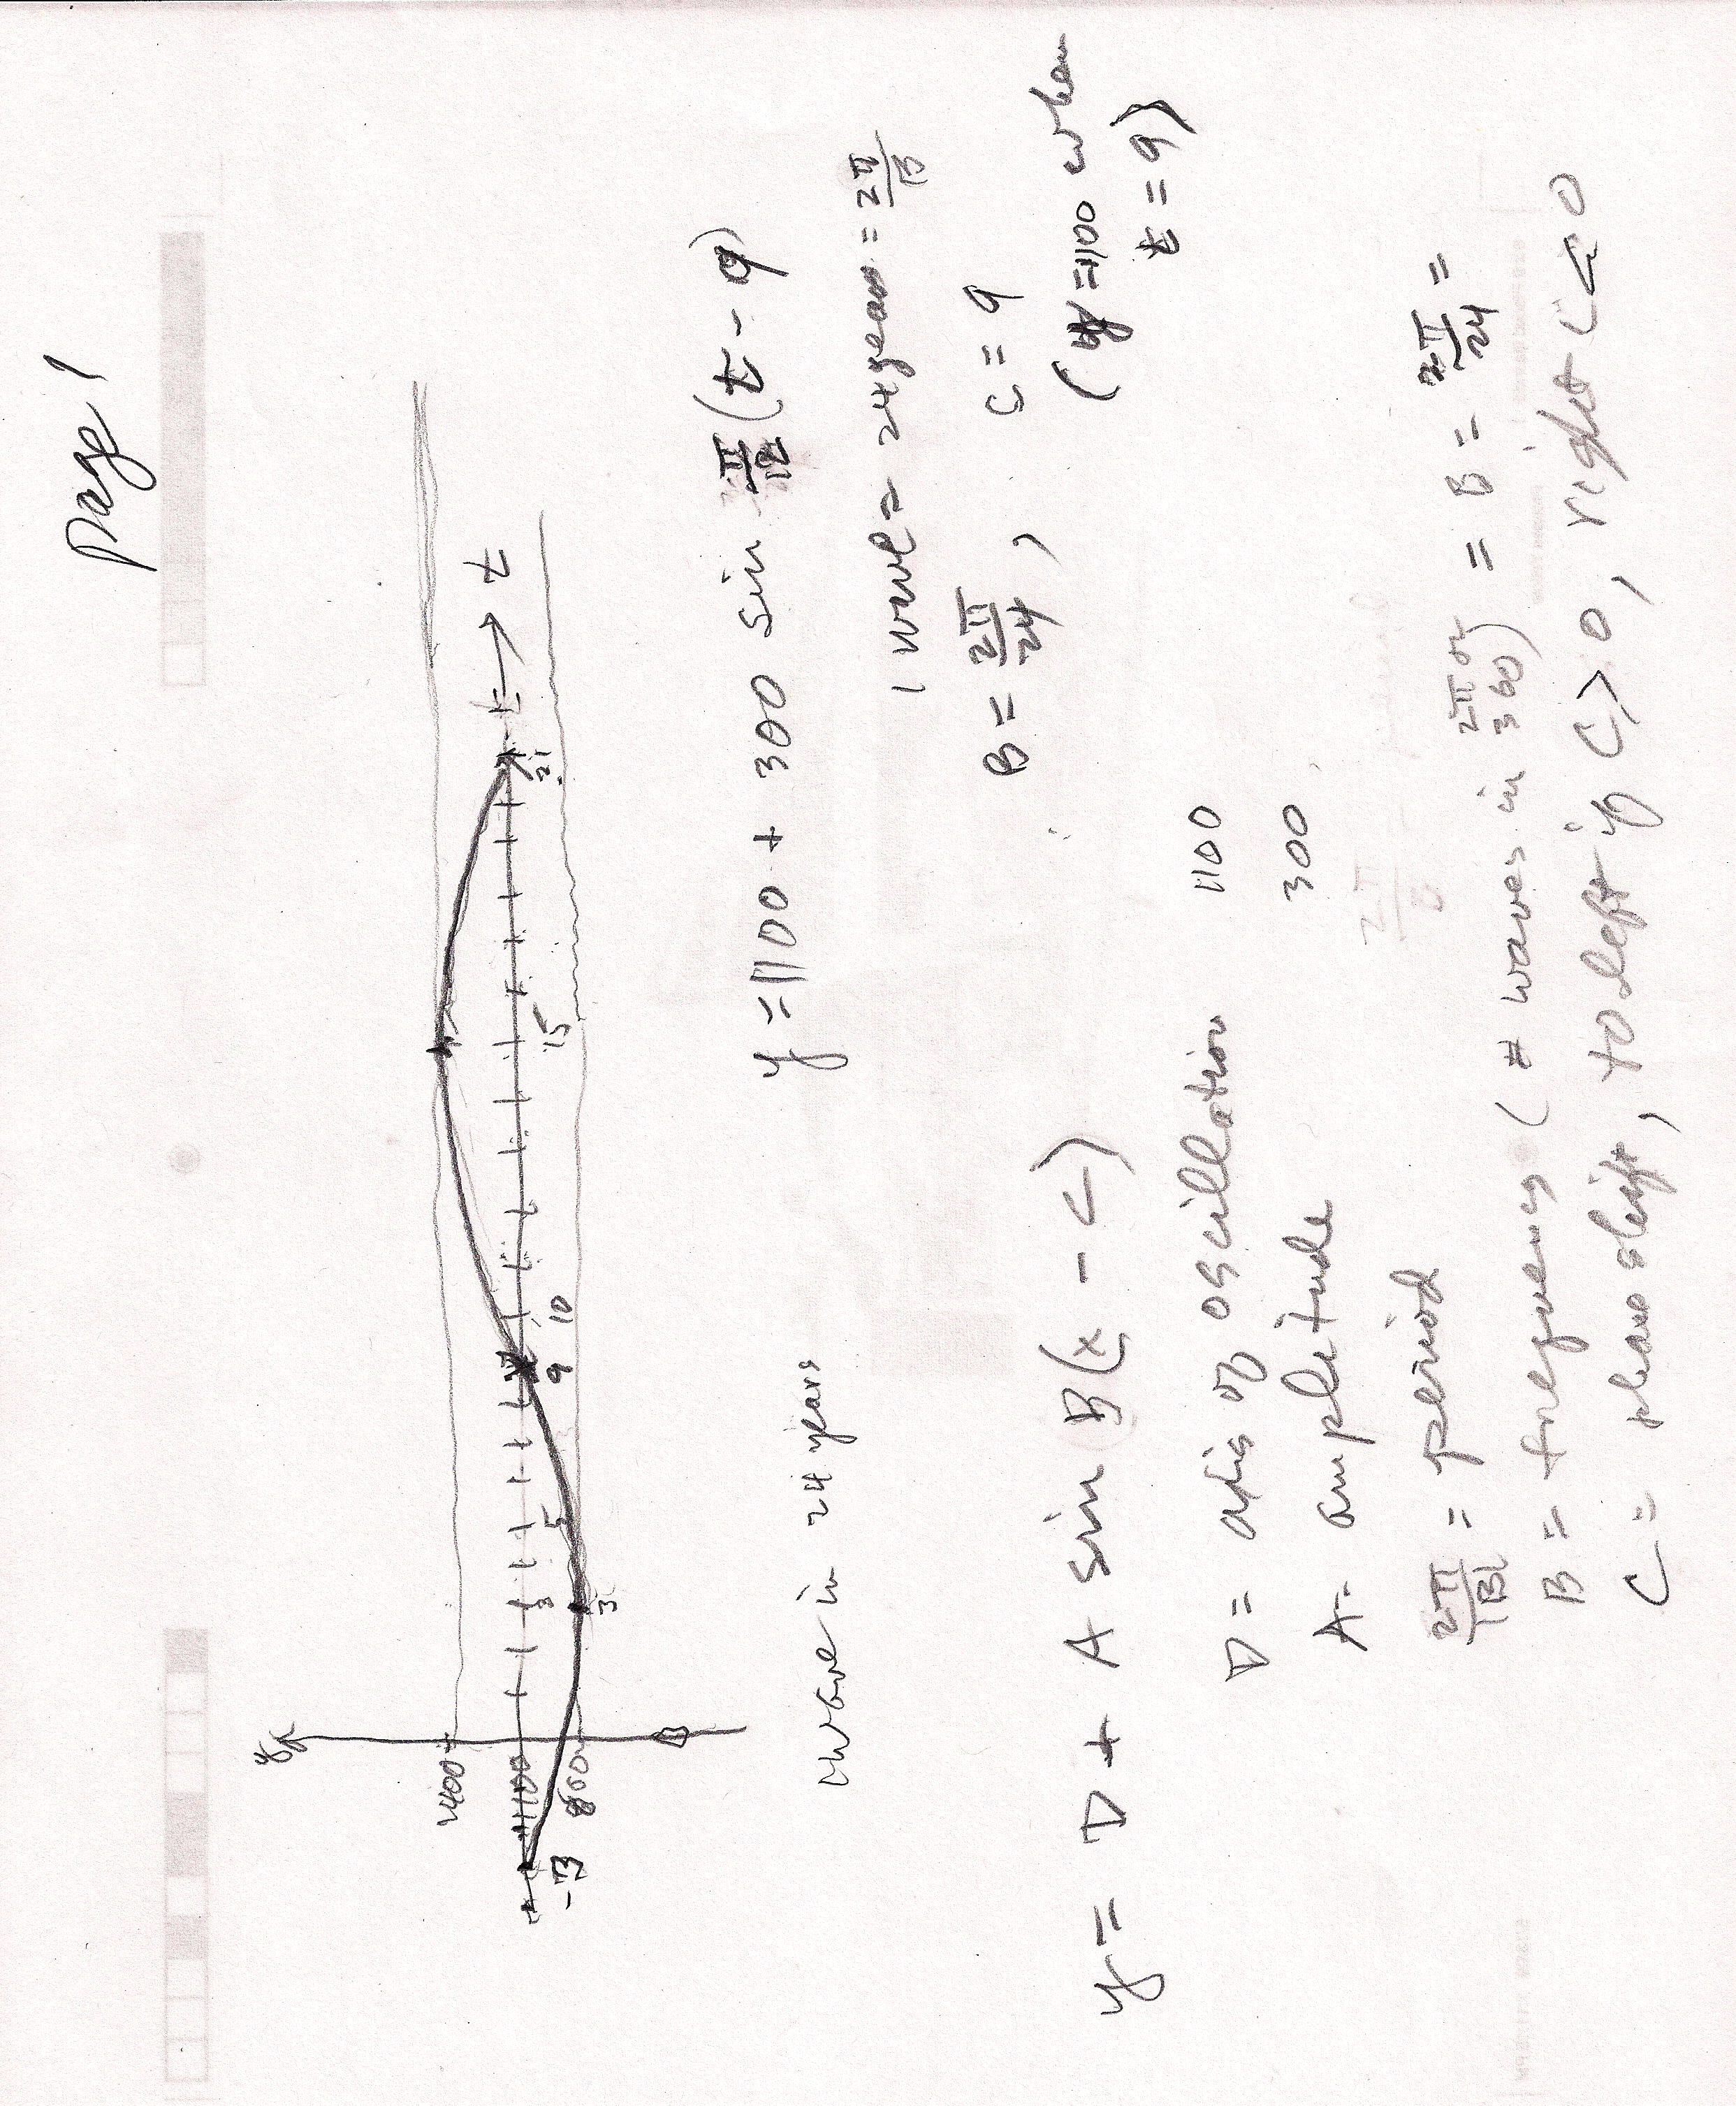 Page 1
y
1400
1100
800
-3
3
3
5
9
10
15
21
t
y = 1100 + 300 sin π/12 (t - 9)
1 wave in 24 years
1 wave = 24 years = 2π/B
B = 2π/24 , C = 9
(y = 1100 when
t = 9)
y = D + A sin B(x - C)
D = axis of oscillation 1100
A = amplitude 300
2π/|B| = period
B = frequency (# waves in 2π or 360) = B = 2π/24 =
C = phase shift, to left if C > 0, right C < 0